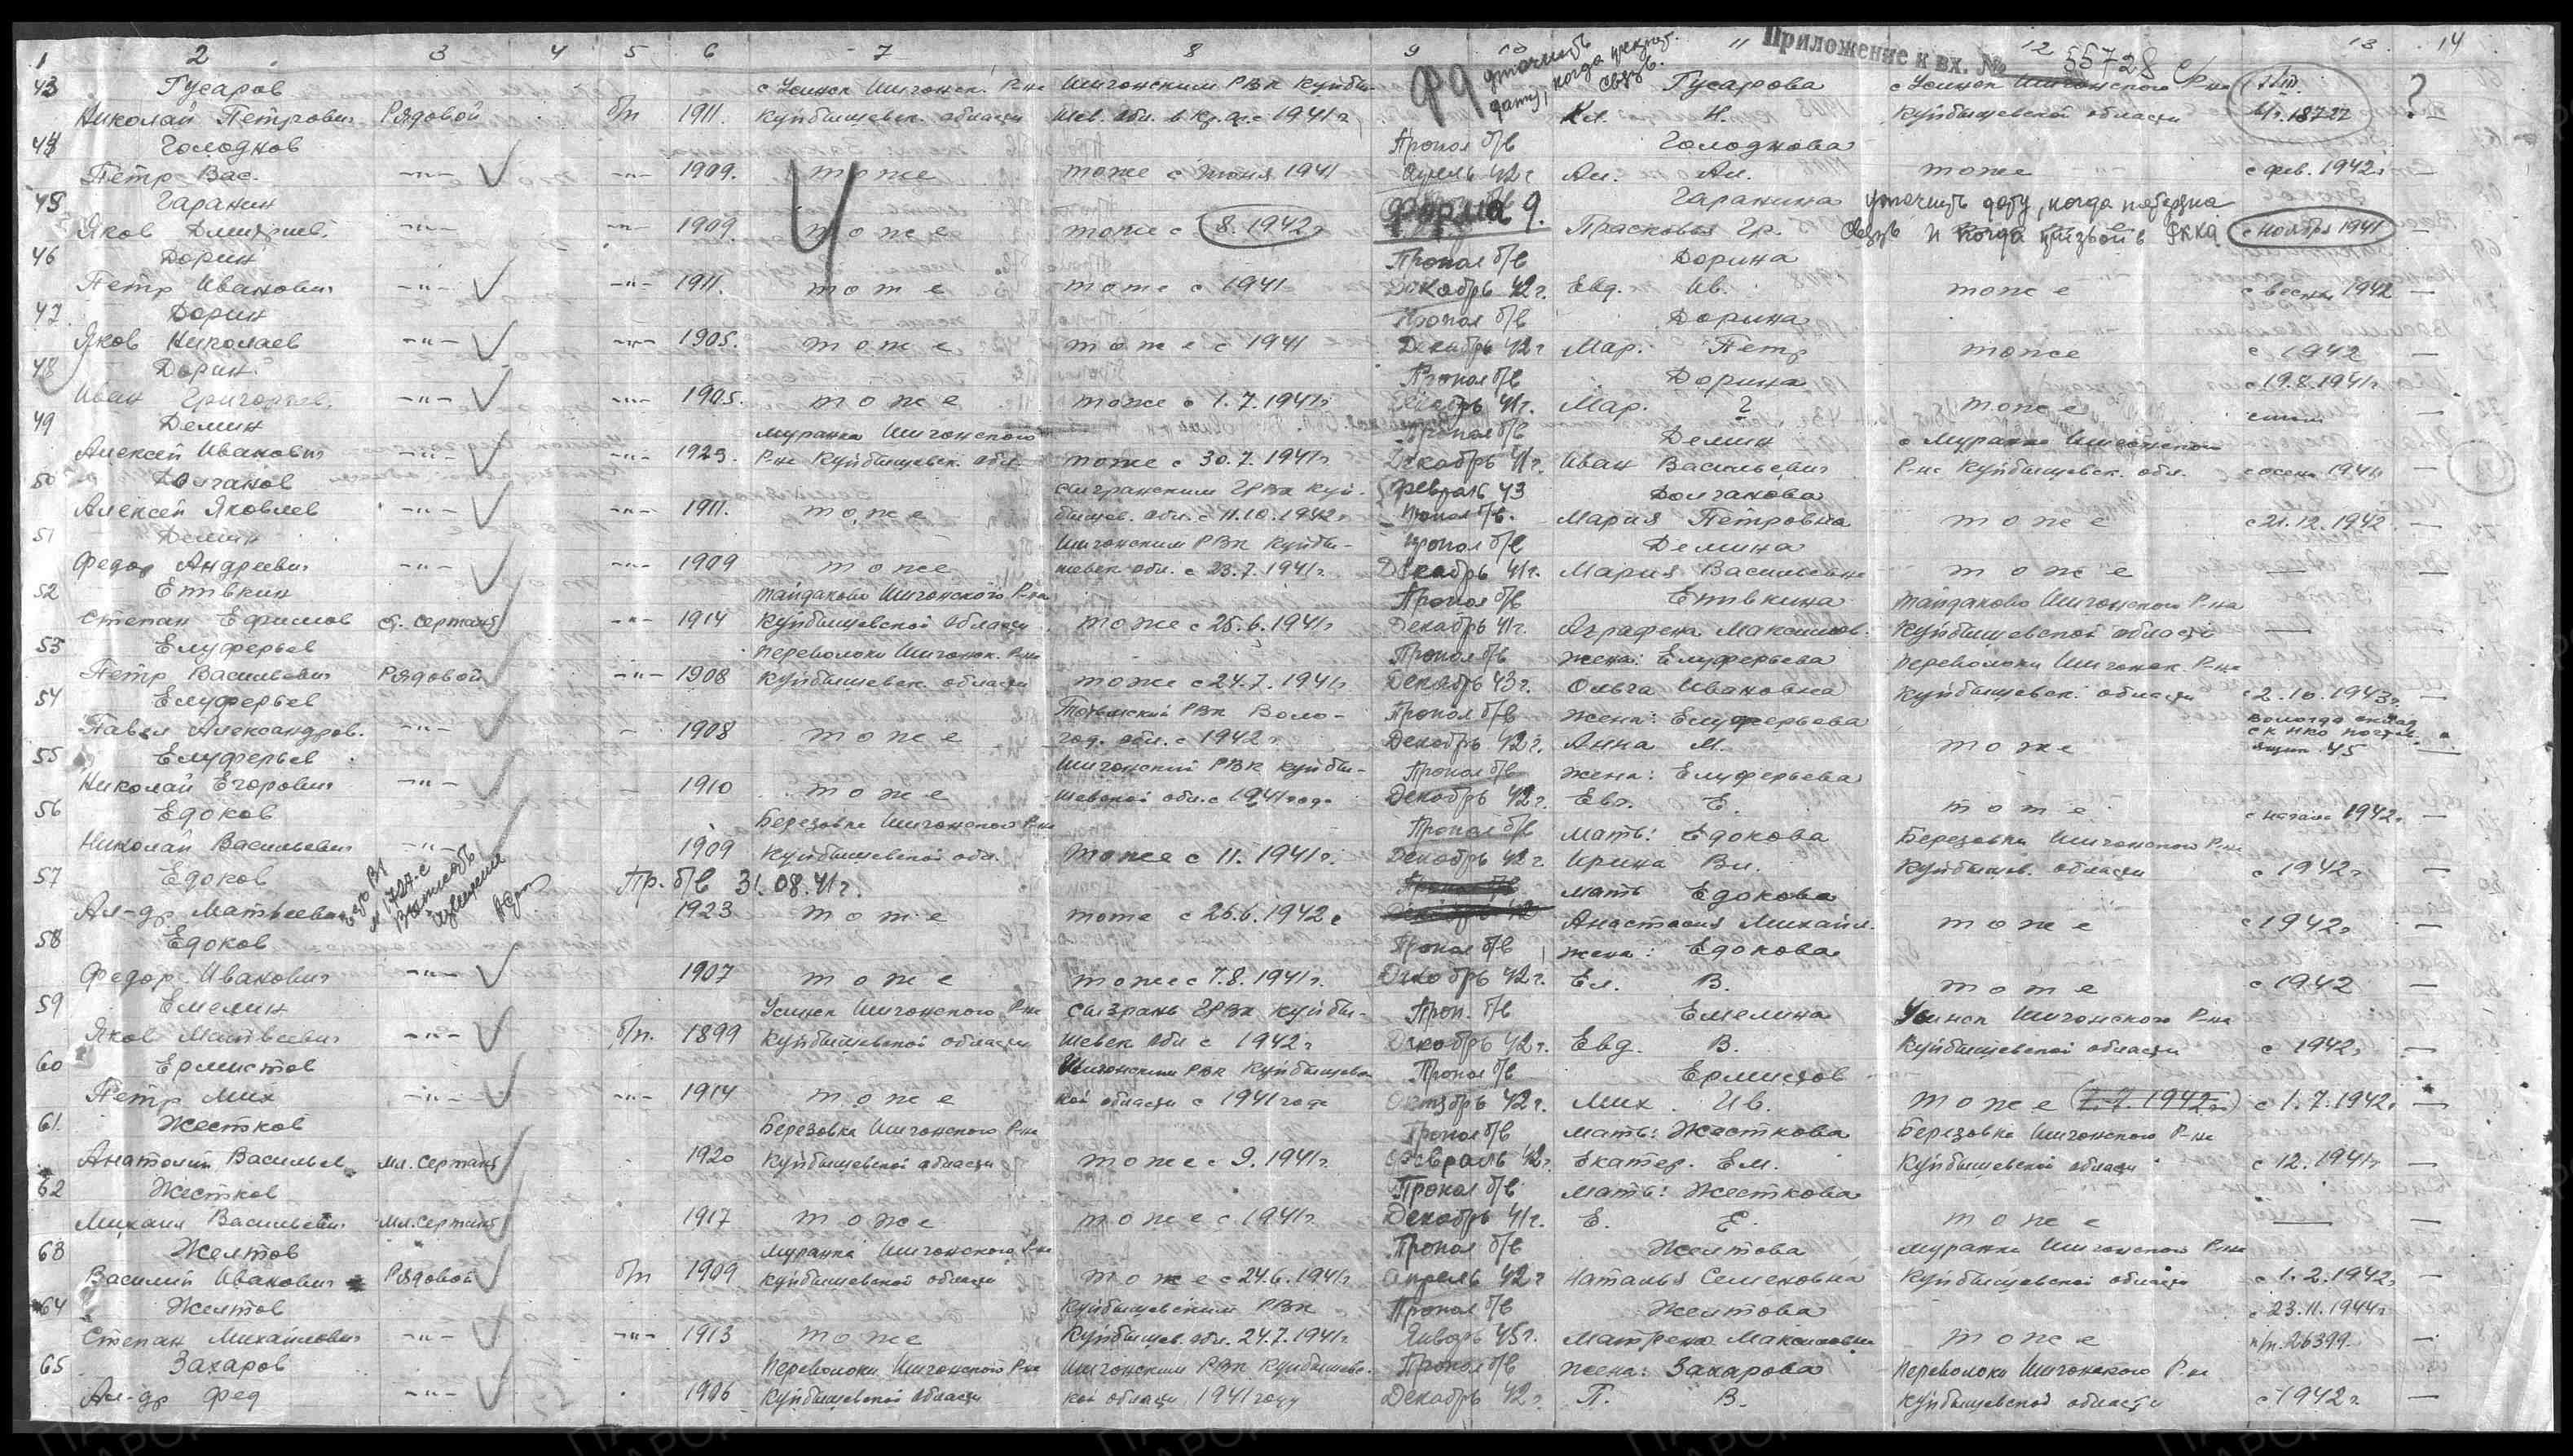 1 2 3 4 5 6 7 8 9 10 11 12 13 14
Приложение к вх. № 55728 с/р
Ф9 уточнить дату, когда прекрат. связь.
43 Гусаров с Усинск Шигонск. Р-на Шигонским РВК Куйбы- Гусарова с Усинск Шигонского Р-на
Николай Петрович Рядовой б/п 1911. Куйбышевск. области шев. обл. в Кр. а. с 1941 г. Кл. Н. Куйбышевской области 18727 ?
44 Голоднов Пропал б/в Голоднова
Петр Вас. -"- -"- 1909. тоже тоже с июня 1941 Апрель 42 г Ан. Ал. тоже с фев. 1942 г —
45 Гаранин Форма 9. Гаранина уточнить дату, когда потеряна
Яков Дмитриев. -"- -"- 1909. тоже тоже с 8.1942 г Прасковья Гр. связь и когда призван в РККА с ноября 1941 —
46 Дорин Пропал б/в Дорина
Петр Иванович -"- -"- 1911. тоже тоже с 1941 Декабрь 42 г. Евд. Ив. тоже с весны 1942 —
47 Дорин Пропал б/в Дорина
Яков Николаев -"- -"- 1905. тоже тоже с 1941 Декабрь 42 г Мар. Петр тоже с 1942 —
48 Дорин Пропал б/в Дорина с 19.8.1941 г
Иван Григорьев. -"- -"- 1905. тоже тоже с 1.7.1941 г Декабрь 41 г. Мар. ? тоже —
49 Демин Муранка Шигонского Пропал б/в Демин с Муранка Шигонского
Алексей Иванович -"- -"- 1923. Р-на Куйбышевск. обл. тоже с 30.7.1941 г Декабрь 41 г. Иван Васильевич Р-на Куйбышевск. обл. с осени 1941 г —
50 Долганов Сызранским ГРВК Куй- Февраль 43 Долганова
Алексей Яковлев -"- -"- 1911. тоже бышев. обл. с 11.10.1942 г Пропал б/в. Мария Петровна тоже с 21.12.1942 —
51 Демин Шигонским РВК Куйбы- Пропал б/в Демина
Федор Андреевич -"- -"- 1909 тоже шевск. обл. с 23.7.1941 г. Декабрь 41 г. Мария Васильевна тоже — —
52 Етивкин Тайдаково Шигонского Р-на Пропал б/в Етивкина Тайдаково Шигонского Р-на
Степан Ефимов ст. сержант -"- 1914 Куйбышевской области тоже с 25.6.1941 г Декабрь 41 г. Аграфена Максимов. Куйбышевской области — —
53 Елуферьев Переволоки Шигонск. Р-на Пропал б/в жена: Елуферьева Переволоки Шигонск Р-на
Петр Васильевич Рядовой -"- 1908 Куйбышевск. области тоже с 24.7.1941 г Декабрь 43 г. Ольга Ивановна Куйбышевск. области с 2.10.1943 г. —
54 Елуферьев Тотемский РВК Воло- Пропал б/в жена: Елуферьева Вологда склад
Павел Александров. -"- - 1908 тоже год. обл. с 1942 г Декабрь 42 г. Анна М. тоже ящик 45 —
55 Елуферьев Шигонский РВК Куйбы- Пропал б/в жена: Елуферьева
Николай Егорович -"- - 1910 тоже шевской обл. с 1941 года Декабрь 42 г. Евг. Е. тоже с начала 1942 г. —
56 Едоков Березовка Шигонского Р-на Пропал б/в Мать: Едокова Березовка Шигонского Р-на
Николай Васильевич -"- 1909 Куйбышевской обл. тоже с 11.1941 г. Декабрь 42 г Ирина Вл. Куйбышев. области с 1942 г —
57 Едоков Выписать извещение Пр. б/в 31.08.41 г. Пропал б/в мать Едокова
Ал-др Матвеевич 1923 тоже тоже с 26.6.1942 г Декабрь 42 Анастасия Михайл. тоже с 1942 г —
58 Едоков Пропал б/в жена: Едокова
Федор Иванович -"- 1907 тоже тоже с 7.8.1941 г. Декабрь 42 г. Ел. В. тоже с 1942 —
59 Емелин Усинск Шигонского Р-на Сызрань ГРВК Куйбы- Проп. б/в Емелина Усинск Шигонского Р-на
Яков Матвеевич -"- б/п. 1899 Куйбышевской области шевск обл с 1942 г Декабрь 42 г. Евд. В. Куйбышевской области с 1942 г —
60 Ермистов Шигонским РВК Куйбышевс Пропал б/в Ермистов
Петр Мих -"- -"- 1914 тоже кой области с 1941 года Октябрь 42 г. Мих. Ив. тоже (1.7.1942 г.) с 1.7.1942 г —
61. Жестков Березовка Шигонского Р-на Пропал б/в Мать: Жесткова Березовка Шигонского Р-на
Анатолий Васильев. Мл. Сержант 1920 Куйбышевской области тоже с 9.1941 г. Февраль 42 г. Екатер. Ем. Куйбышевской области с 12.1941 г —
62 Жестков Пропал б/в Мать: Жесткова
Михаил Васильевич Мл. Сержант 1917 тоже тоже с 1941 г Декабрь 41 г. Е. Е. тоже — —
63 Желтов Муранка Шигонского Р-на Пропал б/в Желтова Муранка Шигонского Р-на
Василий Иванович Рядовой б/п 1909 Куйбышевской области тоже с 24.6.1941 г Апрель 42 г Наталья Семеновна Куйбышевской области с 1.2.1942 г —
64 Желтов Куйбышевским РВК Пропал б/в Желтова с 23.11.1944 г
Степан Михайлович -"- -"- 1913 тоже Куйбышев. обл. 24.7.1941 г Январь 45 г. Матрена Максимовна тоже п/п. 26399 —
65 Захаров Переволоки Шигонского Р-на Шигонским РВК Куйбышевс- Пропал б/в жена: Захарова Переволоки Шигонского Р-на
Ал-др Фед -"- 1906 Куйбышевской области кой области 1941 году Декабрь 42 г. П. В. Куйбышевской области с 1942 г. —